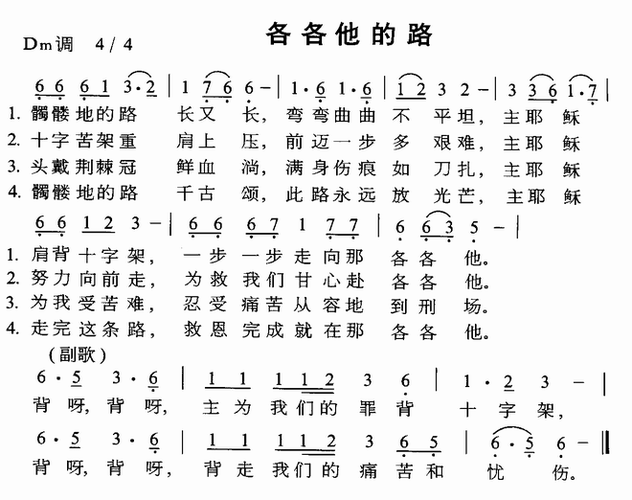 各各他的路
Dm调 4/4
6 6 6 1 3·2 | 1 7 6 6 - | 1·6 1·6 | 1 2 3 2 - | 3 3 6 1·7 |
1. 髑髅地的路 长又长，弯弯曲曲不平坦，主耶稣
2. 十字苦架重 肩上压，前迈一步多艰难，主耶稣
3. 头戴荆棘冠 鲜血淌，满身伤痕如刀扎，主耶稣
4. 髑髅地的路 千古颂，此路永远放光芒，主耶稣
6 6 1 2 3 - | 6 6 6 7 1 7 7 | 6 6 3 5 - |
1. 肩背十字架，一步一步走向那各各他。
2. 努力向前走，为救我们甘心赴各各他。
3. 为我受苦难，忍受痛苦从容地到刑场。
4. 走完这条路，救恩完成就在那各各他。
(副歌)
6·5 3·6 | 1 1 1 1 2 3 6 | 1·2 3 - |
背呀，背呀，主为我们的罪背十字架，
6·5 3·6 | 1 1 1 1 2 3 6 5 | 6·5 6 - ‖
背呀，背呀，背走我们的痛苦和忧伤。